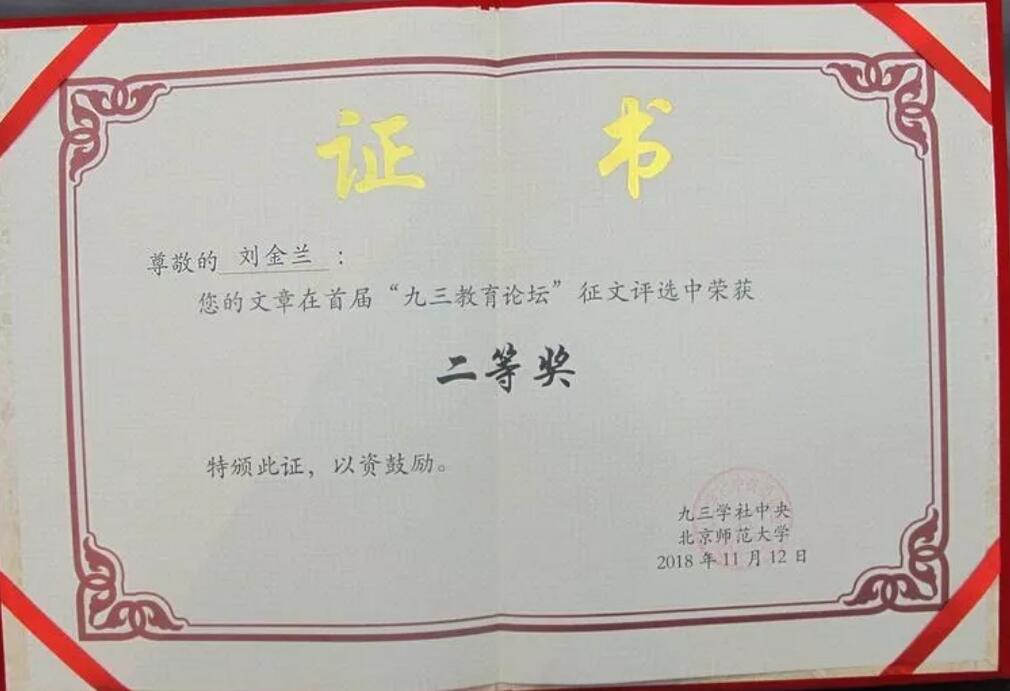 证书
尊敬的 刘金兰 ：
您的文章在首届“九三教育论坛”征文评选中荣获
二等奖
特颁此证，以资鼓励。
九三学社中央
北京师范大学
2018年11月12日